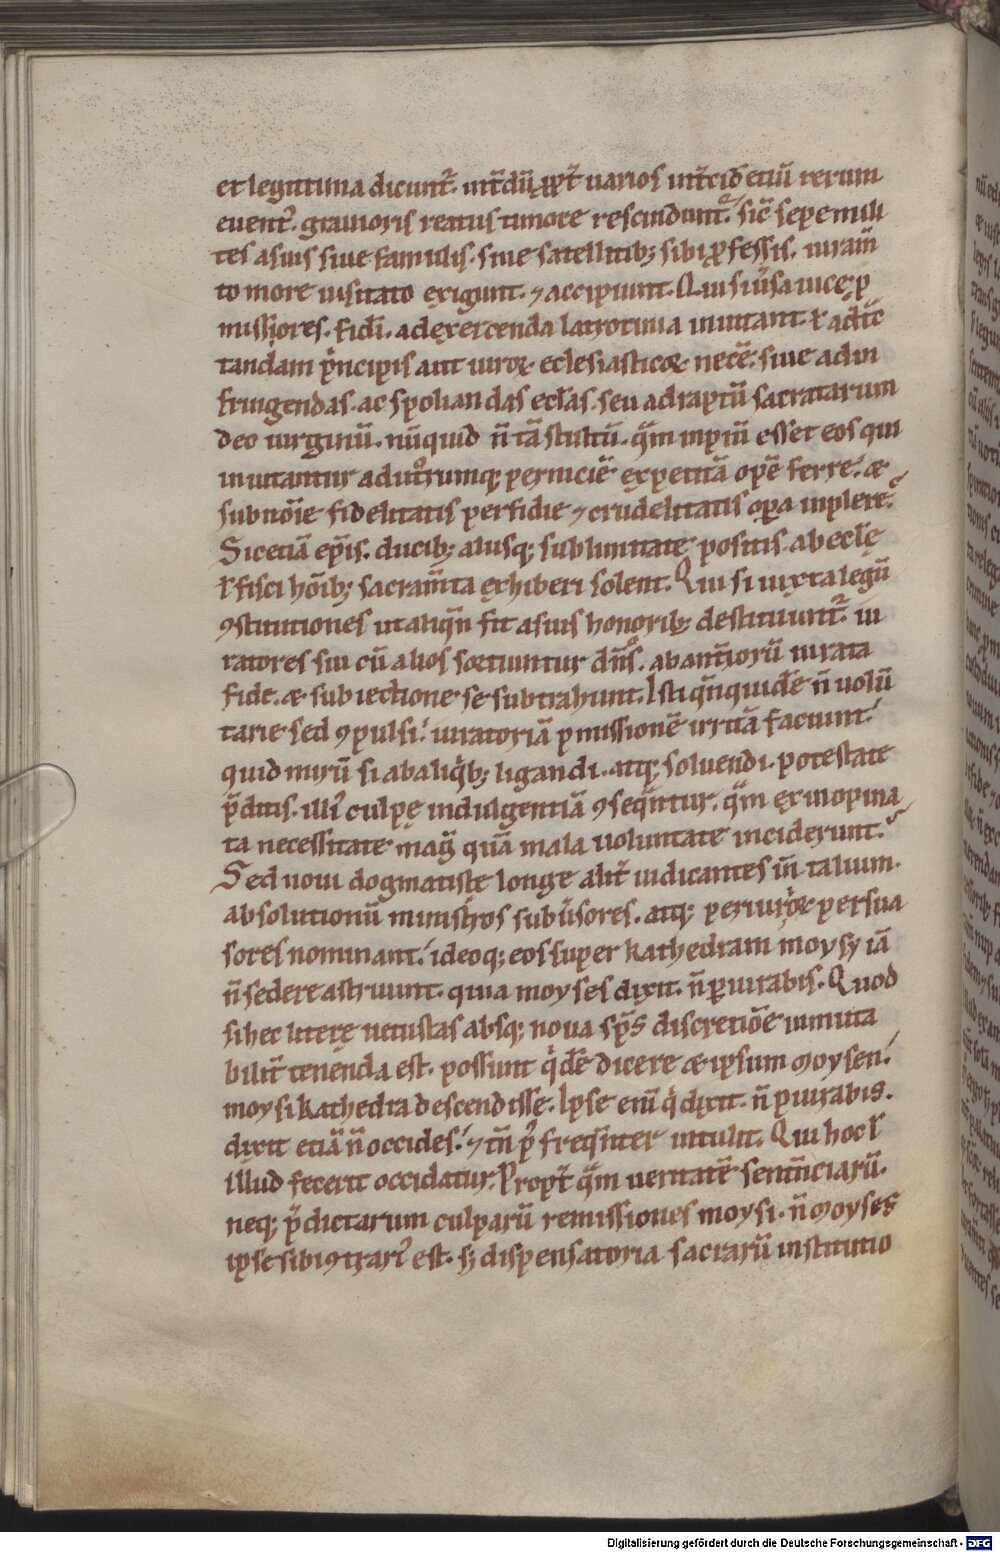 et legitima dicunt᷑. int̄dū ꝓpt̄ varios int̄cidetiū rerum
euent᷑. grauioris reatus timore rescindunt᷑. sic̄ sepe mili
tes a suis siue famulis. siue satellitib; sibi ꝓfessis. iuram̄
to more usitato exigunt. ⁊ accipiunt. Qui si ūsa uice. ꝑ
missores. fidi. ad exercenda latrocinia inuitant. ł ad īc
tandam p̄ncipis aut uiroꝝ eclesiasticoꝝ nece. siue ad in
fringendas. ac spoliandas ecl̄as. seu ad raptū sacratarum
deo uirginū. nūquid n̄ tā stultū. q̄m inpiū esset eos qui
inuitantur ad utrumq; perniciē expetitā opē ferre. æ
sub nōie fidelitatis perfidie ⁊ crudelitatis oꝑa inplere.
Sic etiā ep̄is. ducib; aliisq; sublimitate positis ab ecl̄ę
ł fisci hōib; sacram̄ta exhiberi solent. Qui si iuxta legū
ꝯstitutiones ut aliqn̄ fit a suis honorib; destituunt᷑. iu
ratores sui cū alios sortiuntur dn̄s. ab ant̄iorū iurata
fide. æ subiectione se subtrahunt. Isti qn̄quidē n̄ uolū
tarie sed ꝯpulsi. iuratoriā ꝓmissionē irritā faciunt.
quid mirū si ab aliq̄b; ligandi. atq; soluendi. potestate
p̄ditis. illi᷑ culpę indulgentiā ꝯseqn̄tur. q̄m ex inopina
ta necessitate mag᷑ quā mala uoluntate inciderunt.
Sed noui dogmatiste longe alit̄ iudicantes in̄ talium
absolutionū ministros subūsores. atq; periurioꝝ persua
sores nominant. ideoq; eos super kathedram moysy iā
n̄ sedere astruunt. quia moyses dixit. n̄ ꝑiurabis. Quod
si hec litere uetustas absq; noua sp̄s discretiōe inmuta
bilit̄ tenenda est. possunt q̄dē dicere æ ipsum moysen.
moysi kathedra descendisse. Ipse enī q̄ dixit. n̄ ꝑiurabis.
dixit etiā n̄ occides. ⁊ tn̄ p᷑ freqn̄ter intulit. Qui hoc ł
illud fecerit occidatur. Propt̄ q̄m ueritatē sentn̄ciarū.
neq; p̄dictarum culparū remissiones moysi. n̄ moyses
ipse sibi ꝯtrari᷑ est. s; dispensatoria sacrarū institutio
Digitalisierung gefördert durch die Deutsche Forschungsgemeinschaft - DFG